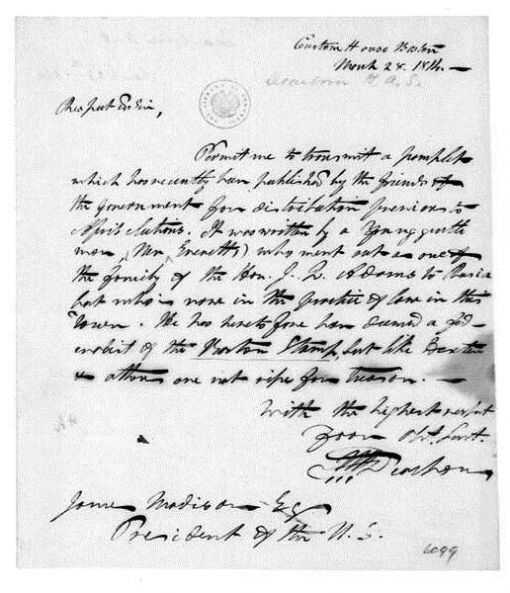 Custom House Boston
March 28. 1814. —
Dearborn H. A. S.
Respected Sir,
Permit me to transmit a pamphlet
which has recently been published by the friends of
the government for distribution previous to
April elections. It was written by a Young gentle
man (Mr. Everett) who went out as one of
the family of the Hon. J. Q. Adams to Russia
but who is now in the practice of law in this
Town. He has heretofore been deemed a fed-
eralist of the Boston Stamp, but like Dexter
& others are not ripe for treason. —
With the highest respect
Your Obt. Servt.
H A S Dearborn
James Madison Esq
President of the U. S.
6099